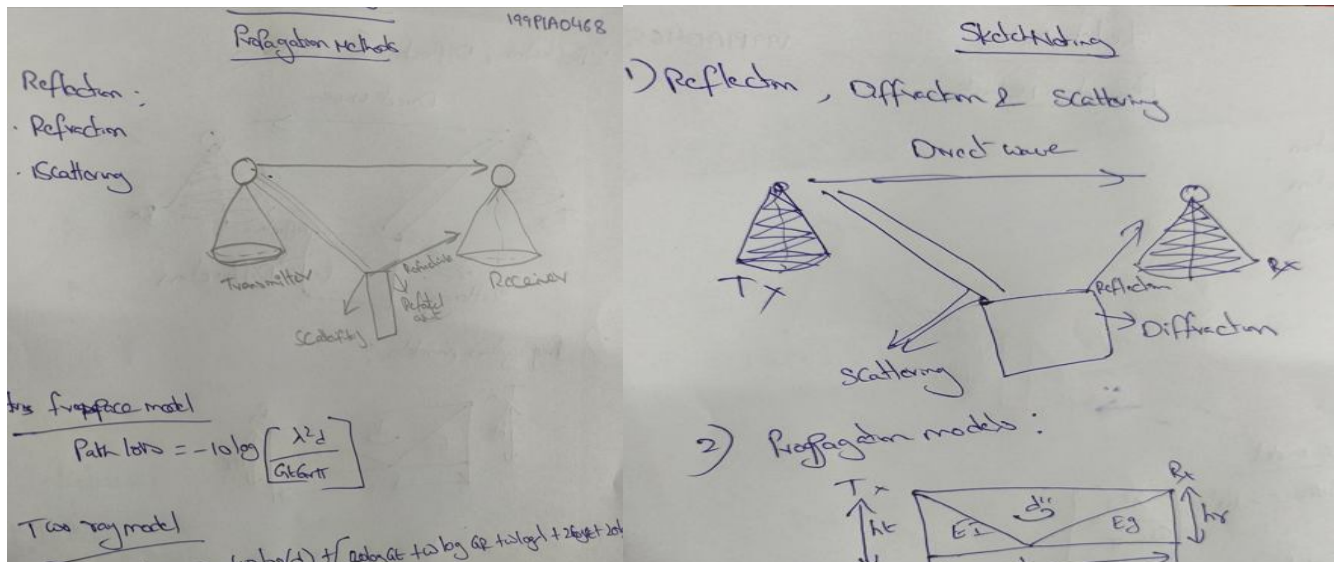 199P1A0468
Propagation Methods
Reflection :
· Refraction
· Scattering
Transmitter
Receiver
Scattering
free space model
Path loss = -10 log [λ²d / GtGrπ]
Two ray model
Sketch Noting
1) Reflection, Diffraction & Scattering
Direct wave
Tx
Rx
Reflection
Diffraction
Scattering
2) Propagation models :
Tx
Rx
ht
d"
EI
Eg
hr